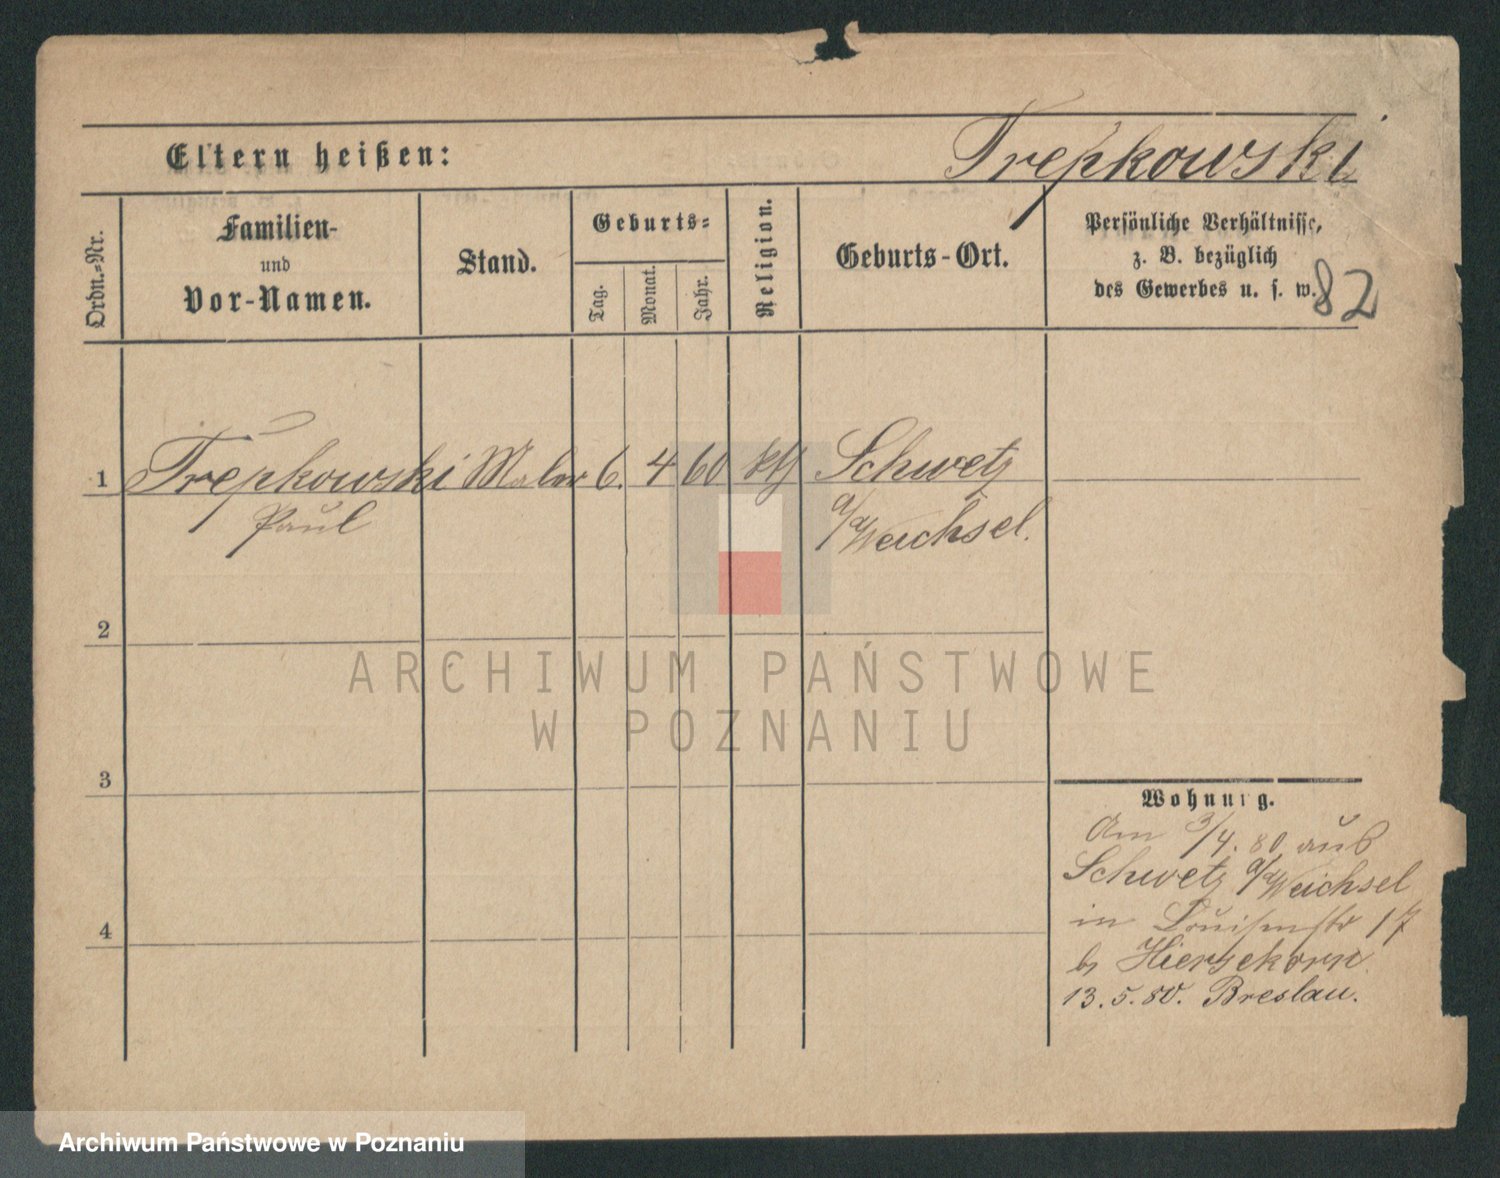 Eltern heißen:
Trepkowski
Ordn.-Nr.
Familien-
und
Vor-Namen.
Stand.
Geburts-
Tag.
Monat.
Jahr.
Religion.
Geburts-Ort.
Persönliche Verhältnisse,
z. B. bezüglich
des Gewerbes u. s. w.
82
1 Trepkowski Maler 6. 4 60 kth Schwetz
Paul a/d Weichsel.
2
3
4
Wohnung.
Am 3/4. 80 aus
Schwetz a/d Weichsel
in Louisenstr 17
b Hiersekorn.
13. 5. 80. Breslau.
ARCHIWUM PAŃSTWOWE
W POZNANIU
Archiwum Państwowe w Poznaniu